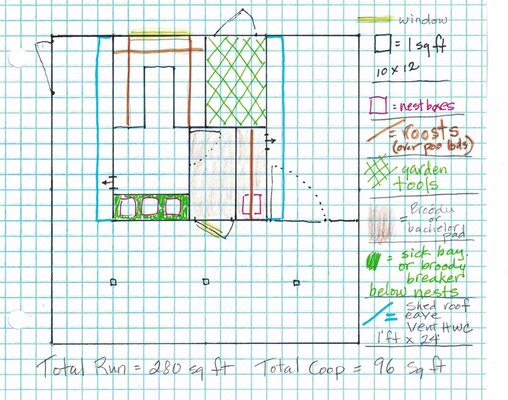 window
= 1 sq ft
10 x 12
= nest boxes
= roosts
(over poo bds)
garden
tools
= Broody
or
bachelor
pad
= sick bay
or broody
breaker
below nests
shed roof
= eave
Vent HWC
1'ft x 24'
Total Run = 280 sq ft Total Coop = 96 Sq ft